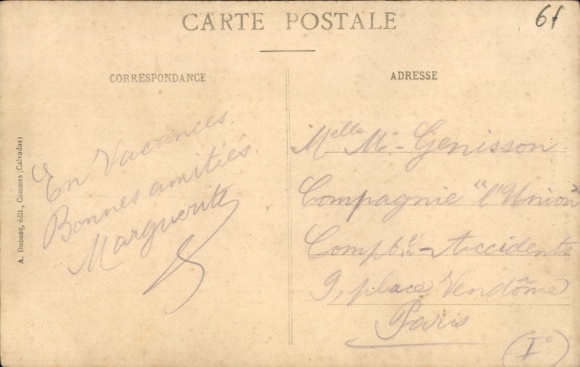 CARTE POSTALE
6f
CORRESPONDANCE
ADRESSE
En Vacances.
Bonnes amitiés.
Marguerite
Melle M. Genisson
Compagnie "l'Union"
Accidents
9, place Vendôme
Paris
(Ie)
édit., Commes (Calvados)